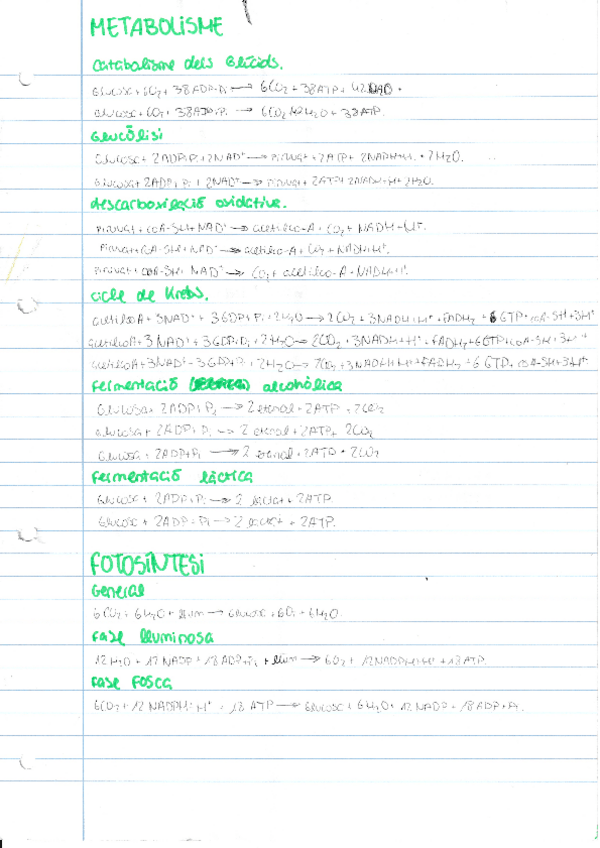 METABOLISME
Catabolisme dels Glúcids.
Glucosa + 6O₂ + 38ADP+Pi → 6CO₂ + 38ATP +
Glucosa + 6O₂ + 38ADP+Pi → 6CO₂ + H₂O + 38ATP.
Glucòlisi
Glucosa + 2ADP+Pi + 2NAD⁺ → Piruvat + 2ATP + 2NADH+H⁺ + 2H₂O.
Glucosa + 2ADP+Pi + 2NAD⁺ → Piruvat + 2ATP + 2NADH+H⁺ + 2H₂O.
descarboxilació oxidativa.
Piruvat + CoA-SH + NAD⁺ → acetilco-A + CO₂ + NADH+H⁺.
Piruvat + CoA-SH + NAD⁺ → acetilco-A + CO₂ + NADH+H⁺.
Piruvat + COA-SH + NAD⁺ → CO₂ + acetilco-A + NADH+H⁺.
cicle de Krebs.
acetilcoA + 3NAD⁺ + 3GDP+Pi + 2H₂O → 2CO₂ + 3NADH+H⁺ + FADH₂ + 6GTP + coA-SH + 3H⁺
acetilcoA + 3NAD⁺ + 3GDP+Pi + 2H₂O → 2CO₂ + 3NADH+H⁺ + FADH₂ + 6GTP + coA-SH + 3H⁺
acetilcoA + 3NAD⁺ + 3GDP+Pi + 2H₂O → 2CO₂ + 3NADH+H⁺ + FADH₂ + 6GTP + coA-SH + 3H⁺
Fermentació alcohòlica
Glucosa + 2ADP+Pi → 2 etanol + 2ATP + 2CO₂
Glucosa + 2ADP+Pi → 2 etanol + 2ATP + 2CO₂
Glucosa + 2ADP+Pi → 2 etanol + 2ATP + 2CO₂
Fermentació làctica
Glucosa + 2ADP+Pi → 2 lactat + 2ATP.
Glucosa + 2ADP+Pi → 2 lactat + 2ATP.
FOTOSÍNTESI
General
6CO₂ + 6H₂O + llum → Glucosa + 6O₂ + 6H₂O.
Fase lluminosa
12H₂O + 12NADP + 18ADP+Pi + llum → 6O₂ + 12NADPH+H⁺ + 18ATP.
Fase Fosca
6CO₂ + 12NADPH+H⁺ + 18ATP → Glucosa + 6H₂O + 12NADP + 18ADP+Pi.